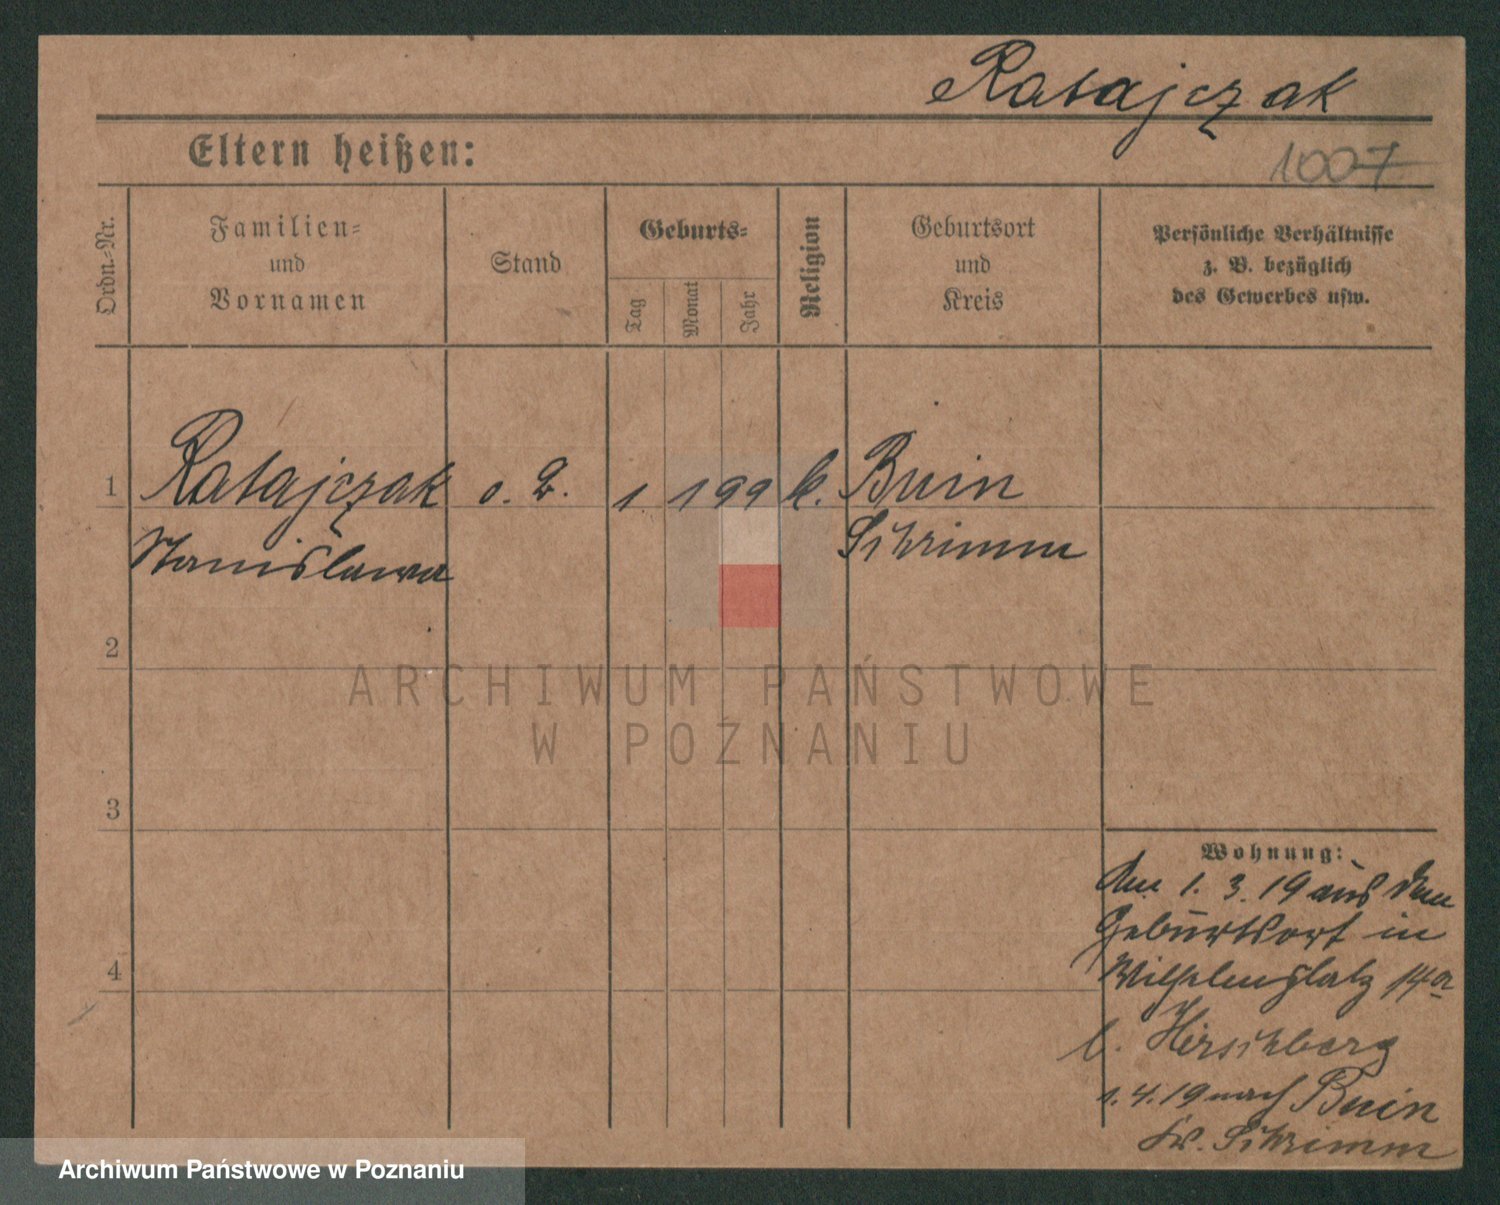 Ratajczak
Eltern heißen:
1007
Ordn.-Nr.
Familien-
und
Vornamen
Stand
Geburts-
Tag
Monat
Jahr
Religion
Geburtsort
und
Kreis
Persönliche Verhältnisse
z. B. bezüglich
des Gewerbes usw.
1 Ratajczak o. B. 1. 1 99 k. Bnin
Stanislawa Schrimm
2
3
4
Wohnung:
Am 1. 3. 19 aus dem
Geburtsort in
Wilhelmsplatz 14a
b. Hirschberg
1. 4. 19 nach Bnin
Kr. Schrimm
ARCHIWUM PAŃSTWOWE
W POZNANIU
Archiwum Państwowe w Poznaniu